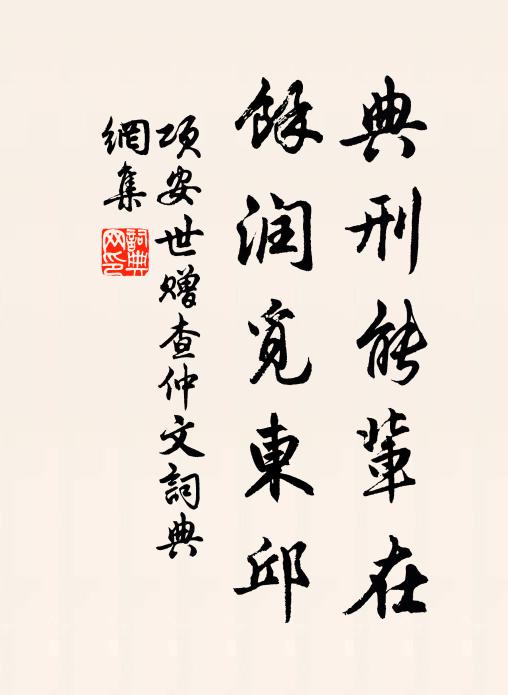 典刑能輩在
餘润覓東邱
项安世赠查仲文詞典
網集
詞典
网印